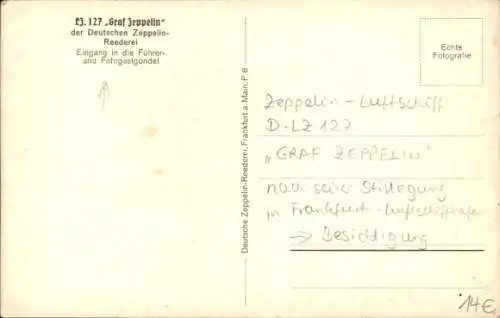 LZ. 127 „Graf Zeppelin"
der Deutschen Zeppelin-
Reederei
Eingang in die Führer-
und Fahrgastgondel
Deutsche Zeppelin-Reederei, Frankfurt a. Main, P. 8
Echte
Fotografie
Zeppelin - Luftschiff
D-LZ 127
„GRAF ZEPPELIN"
nach seiner Stillegung
in Frankfurt - Luftschiffhafen
→ Besichtigung
14€